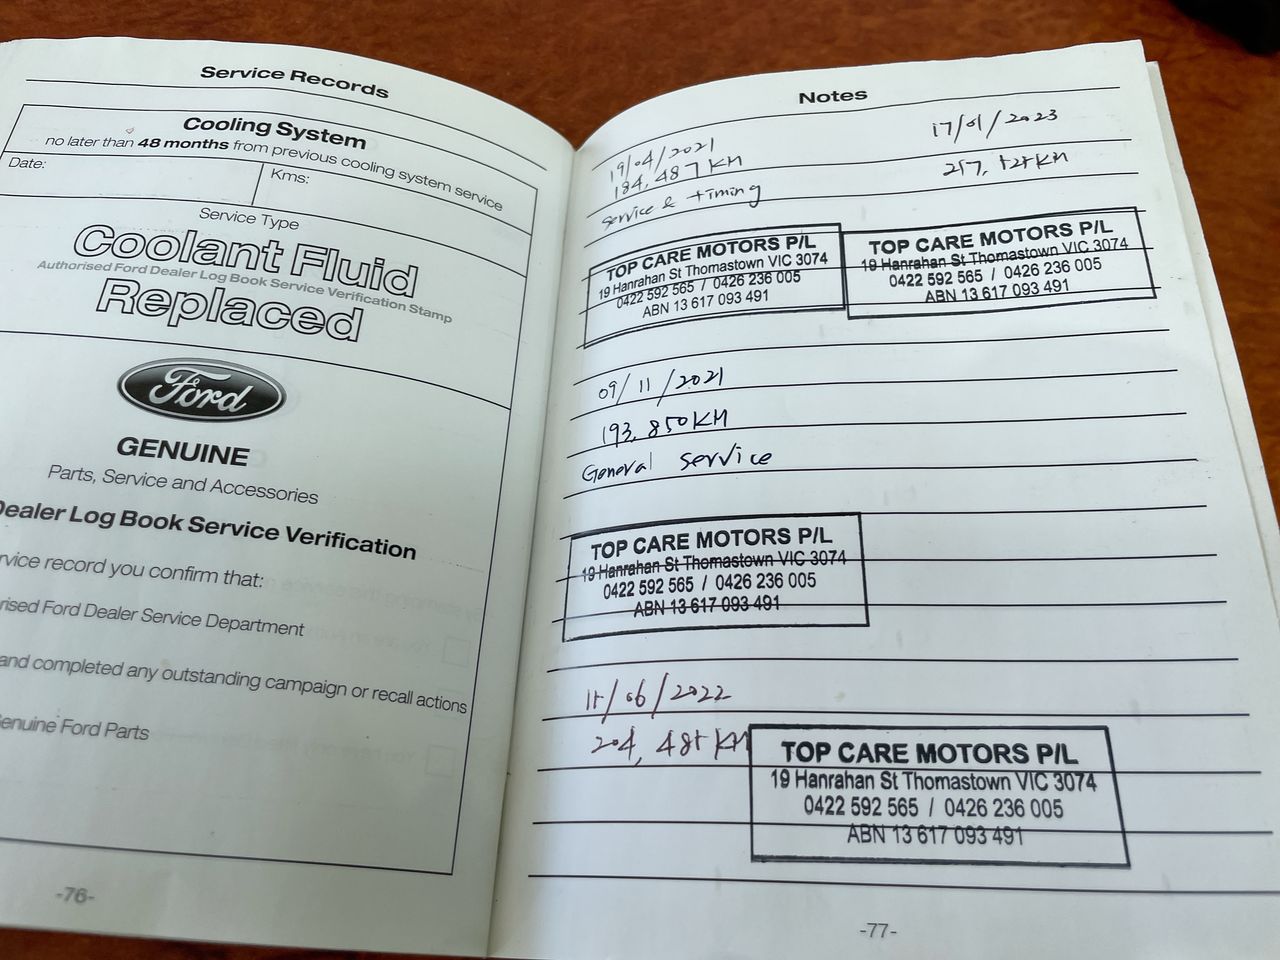 Service Records
Cooling System
no later than 48 months from previous cooling system service
Date:
Kms:
Service Type
Coolant Fluid
Authorised Ford Dealer Log Book Service Verification Stamp
Replaced
Ford
GENUINE
Parts, Service and Accessories
Dealer Log Book Service Verification
service record you confirm that:
rised Ford Dealer Service Department
and completed any outstanding campaign or recall actions
Genuine Ford Parts
-76-
Notes
19/04/2021
184,487 KM
Service & timing
TOP CARE MOTORS P/L
19 Hanrahan St Thomastown VIC 3074
0422 592 565 / 0426 236 005
ABN 13 617 093 491
17/01/2023
TOP CARE MOTORS P/L
19 Hanrahan St Thomastown VIC 3074
0422 592 565 / 0426 236 005
ABN 13 617 093 491
09/11/2021
193,850KM
General service
TOP CARE MOTORS P/L
19 Hanrahan St Thomastown VIC 3074
0422 592 565 / 0426 236 005
ABN 13 617 093 491
15/06/2022
204,485 KM
TOP CARE MOTORS P/L
19 Hanrahan St Thomastown VIC 3074
0422 592 565 / 0426 236 005
ABN 13 617 093 491
-77-